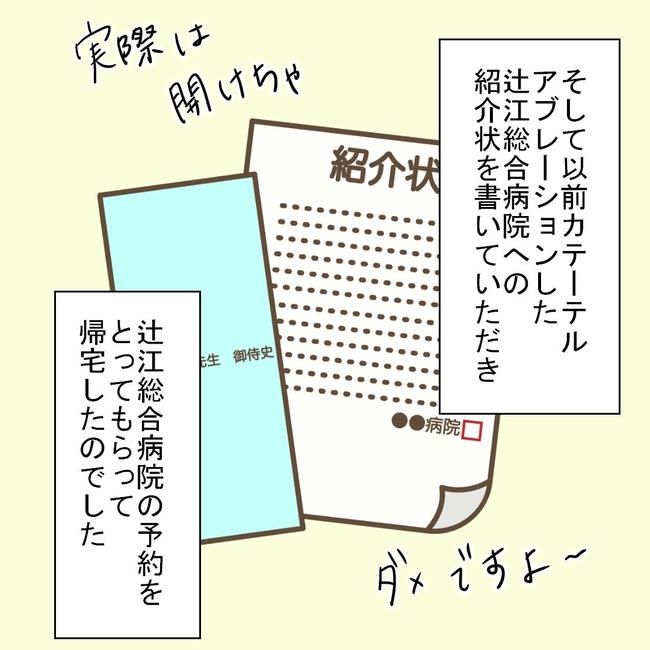 実際は
開けちゃ
そして以前カテーテル
アブレーションした
辻江総合病院への
紹介状を書いていただき
紹介状
先生　御侍史
●●病院
辻江総合病院の予約を
とってもらって
帰宅したのでした
ダメですよ～